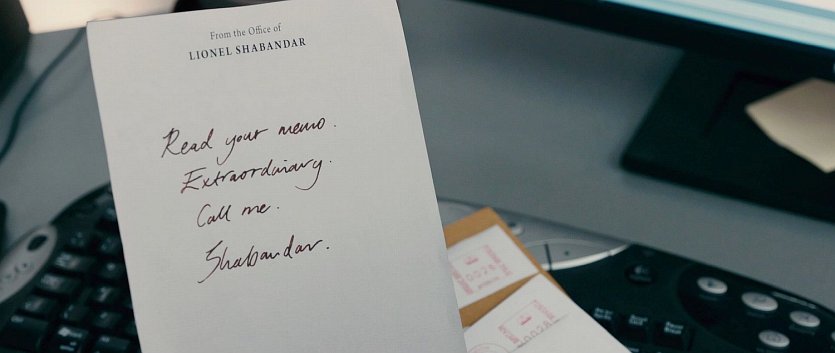 From the Office of
LIONEL SHABANDAR
Read your memo.
Extraordinary.
Call me.
Shabandar.
0028
0028